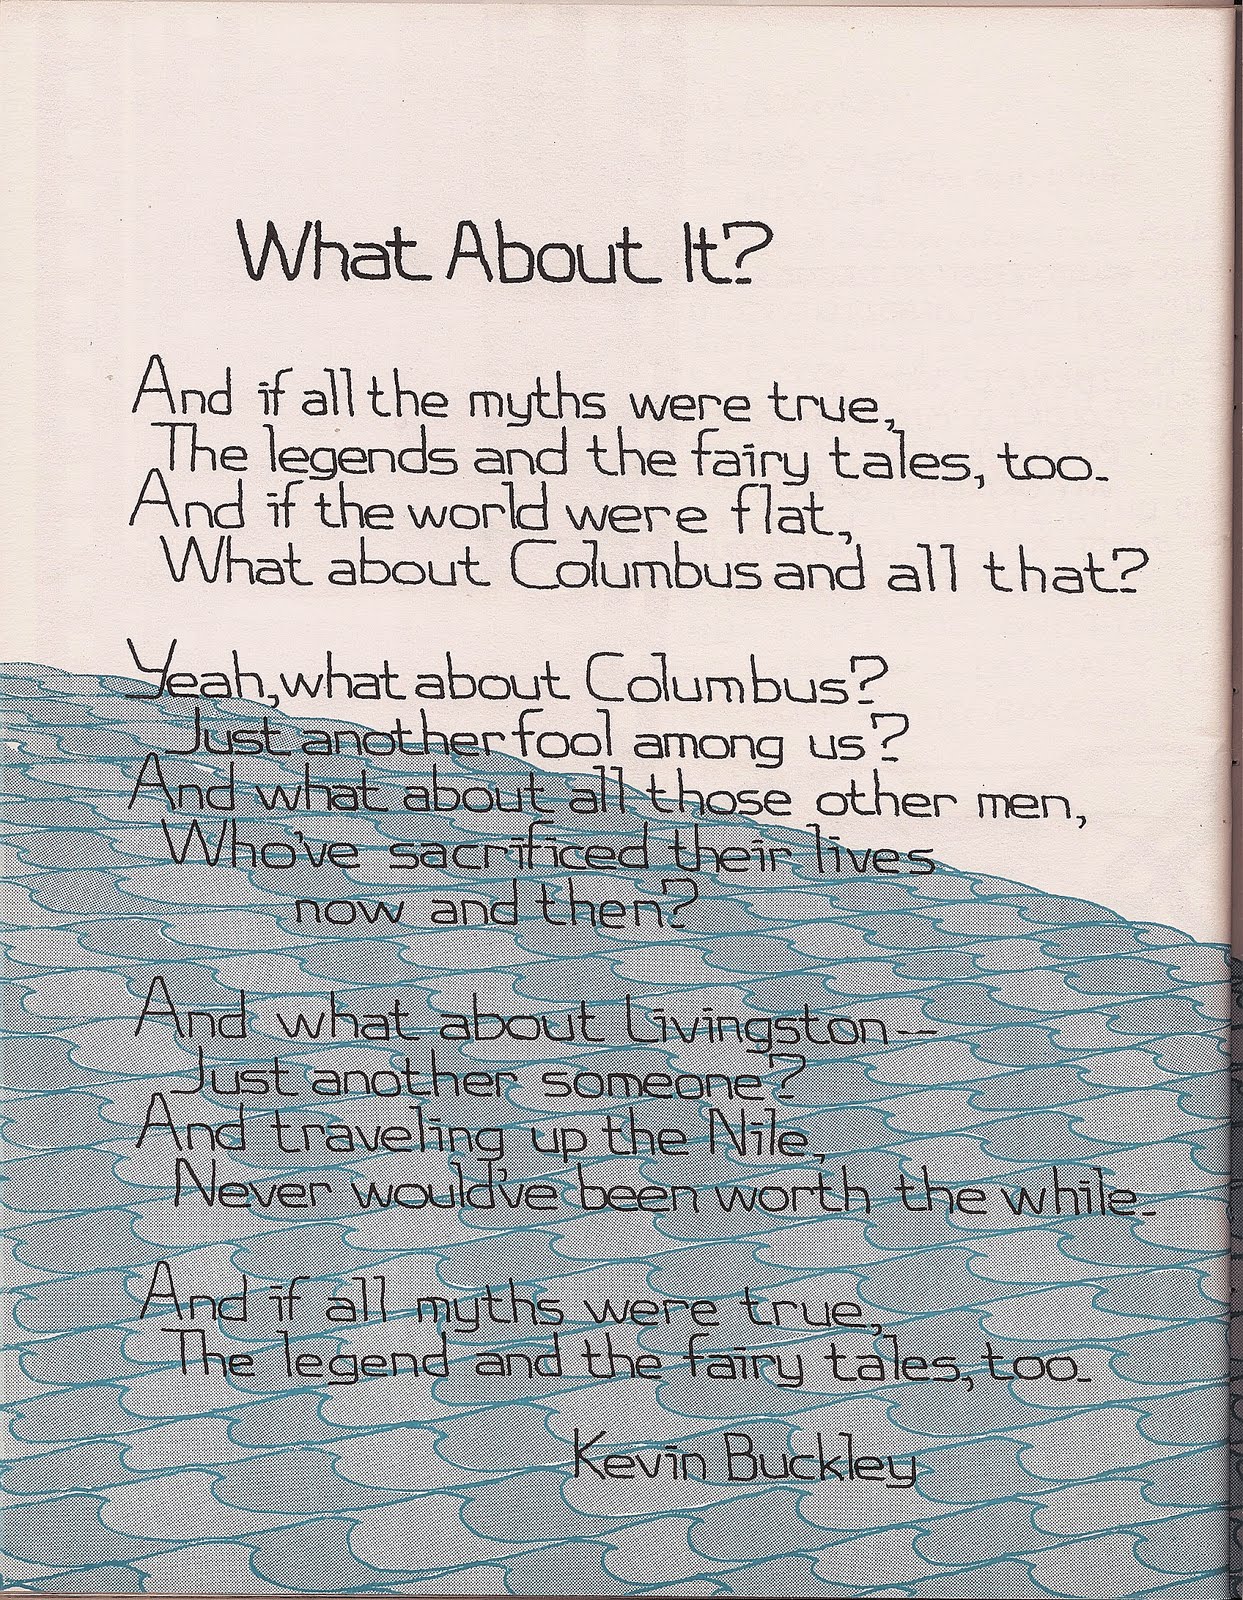 What About It?
And if all the myths were true,
The legends and the fairy tales, too.
And if the world were flat,
What about Columbus and all that?
Yeah, what about Columbus?
Just another fool among us?
And what about all those other men,
Who've sacrificed their lives
now and then?
And what about Livingston--
Just another someone?
And traveling up the Nile,
Never would've been worth the while.
And if all myths were true,
The legend and the fairy tales, too.
Kevin Buckley